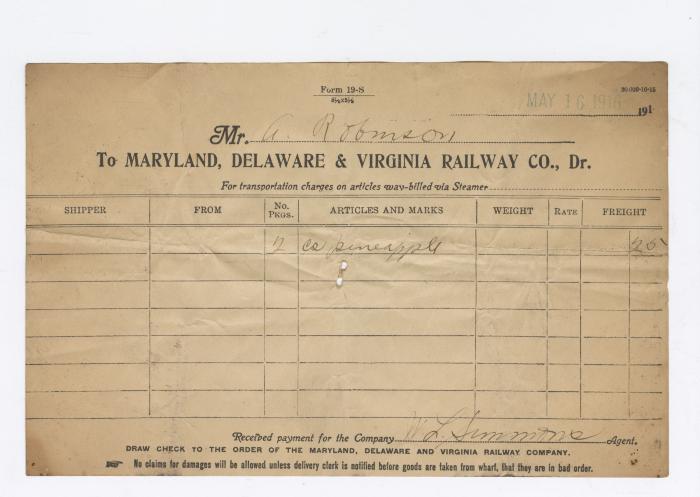 Form 19-S
8½x5½
20,000-10-15
MAY 16 1916 191
Mr. A. Robinson
To MARYLAND, DELAWARE & VIRGINIA RAILWAY CO., Dr.
For transportation charges on articles way-billed via Steamer
SHIPPER FROM No. Pkgs. ARTICLES AND MARKS WEIGHT RATE FREIGHT
2 cs pineapple 25
Received payment for the Company W L Simmons Agent.
DRAW CHECK TO THE ORDER OF THE MARYLAND, DELAWARE AND VIRGINIA RAILWAY COMPANY.
☛ No claims for damages will be allowed unless delivery clerk is notified before goods are taken from wharf, that they are in bad order.